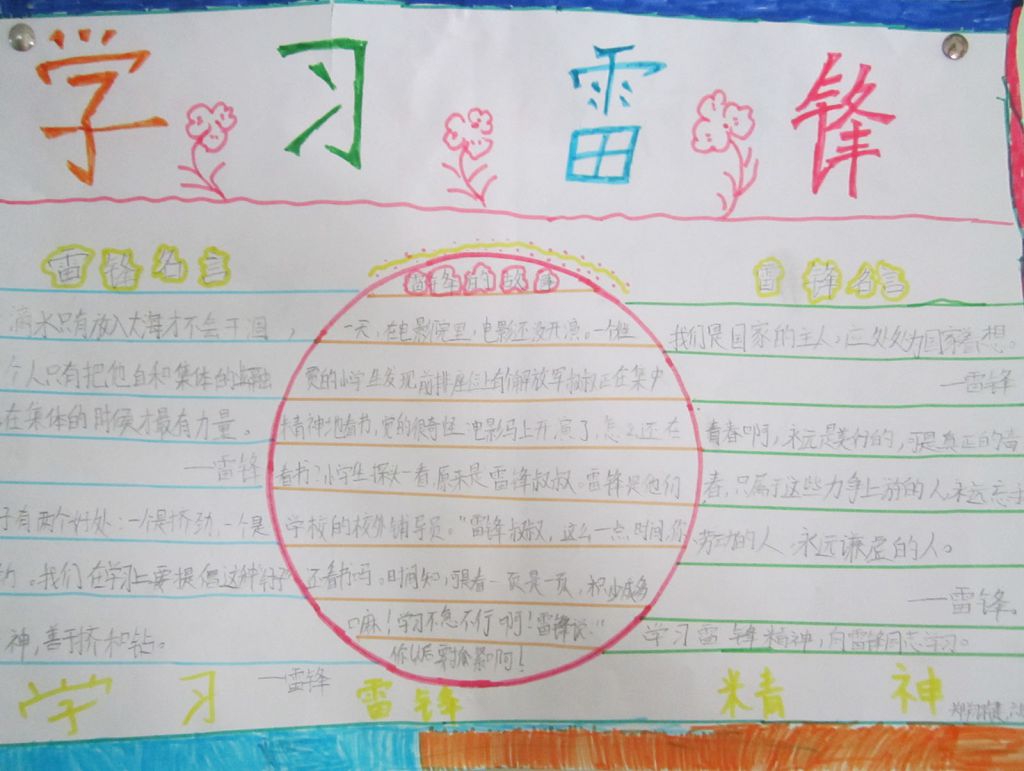 学习雷锋
雷锋名言
滴水只有放入大海才不会干涸，
个人只有把他自和集体的
在集体的时候才最有力量。
一雷锋
子有两个好处：一个是挤劲，一个是
。我们在学习上要提倡这种
神，善于挤和钻。
一雷锋
雷锋的故事
一天，在电影院里，电影还没开演。一个姓
贾的小学生发现前排座位上有个解放军叔叔正在集中
精神地看书，觉的很奇怪，电影马上开演了，怎么还在
看书？小学生探头一看，原来是雷锋叔叔。雷锋是他们
学校的校外辅导员。"雷锋叔叔，这么一点时间，你
还看书吗。时间短，可看一页是一页，积少成多
嘛！学习不急不行啊！雷锋说："
你以后要抓紧啊！
雷锋名言
我们是国家的主人，应处处为国家着想。
一雷锋
青春啊，永远是美好的，可是真正的青
春，只属于这些力争上游的人，永远忘我
劳动的人，永远谦虚的人。
一雷锋。
学习雷锋精神，向雷锋同志学习。
学习雷锋精神